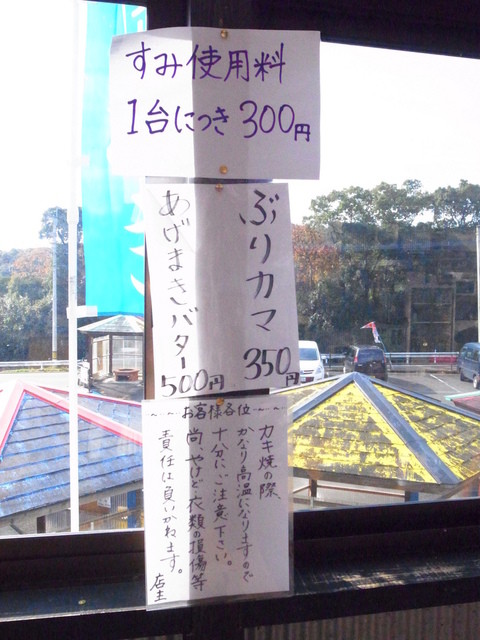 すみ使用料
1台につき300円
ぶりカマ
350円
あげまきバター
500円
～～お客様各位～～
カキ焼の際、
かなり高温になりますので
十分にご注意下さい。
尚やけど衣類の損傷等
責任は負いかねます。
店主